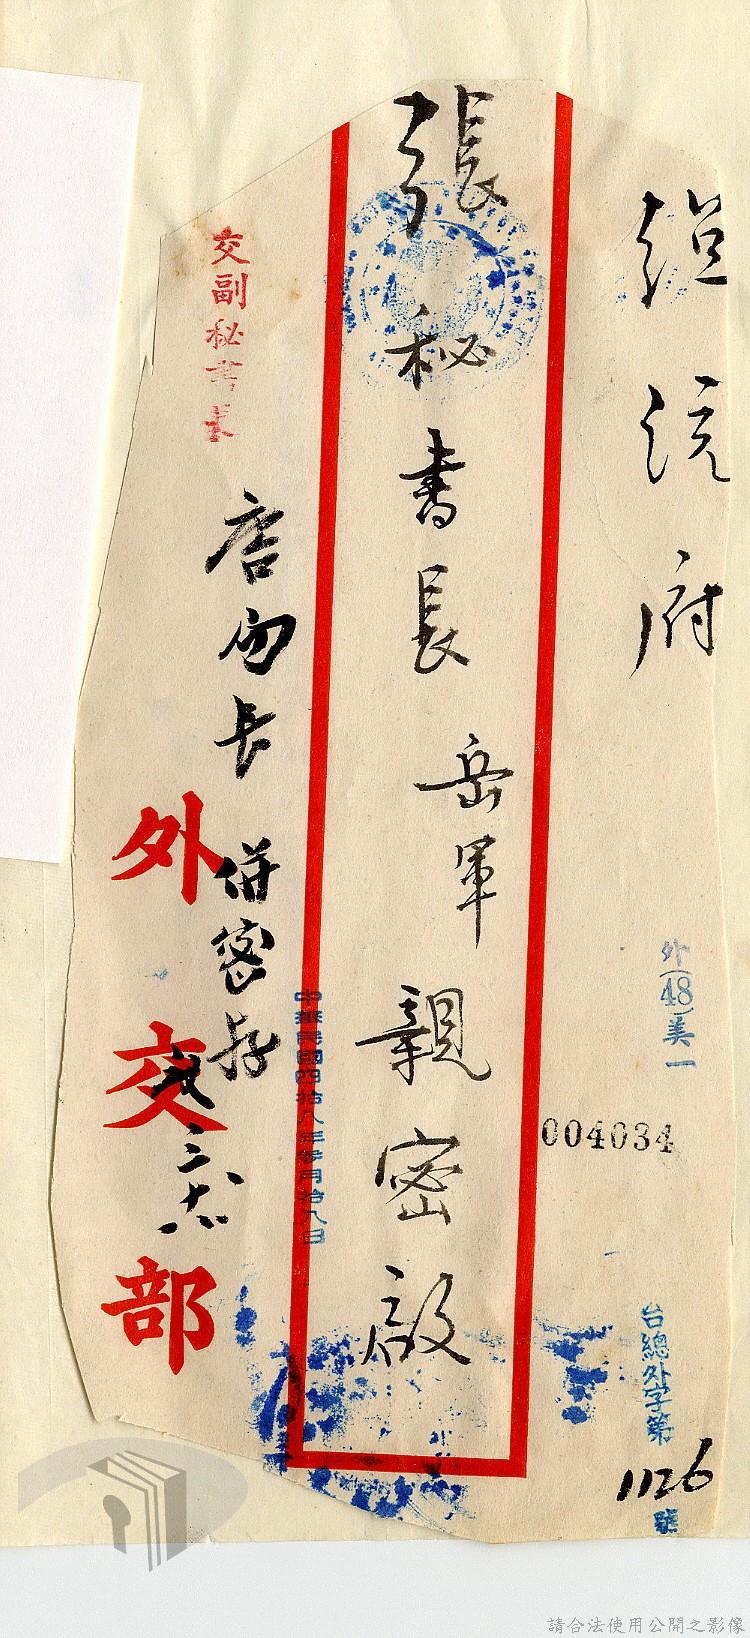 總統府
外(48)美一
004034
台總外字第
1126
號
張秘書長岳軍親密啟
中華民國四拾八年
月拾九日
交副秘書長
唐局長
併密存
三
外交部
請合法使用公開之影像